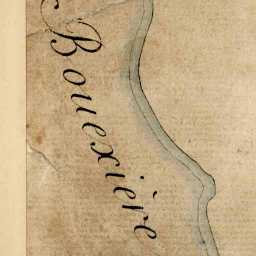 Bouexière